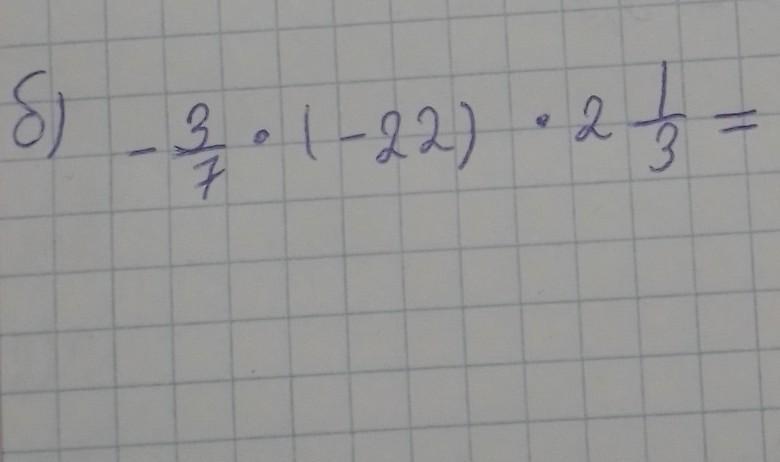 б) - 3/7 · (-22) · 2 1/3 =